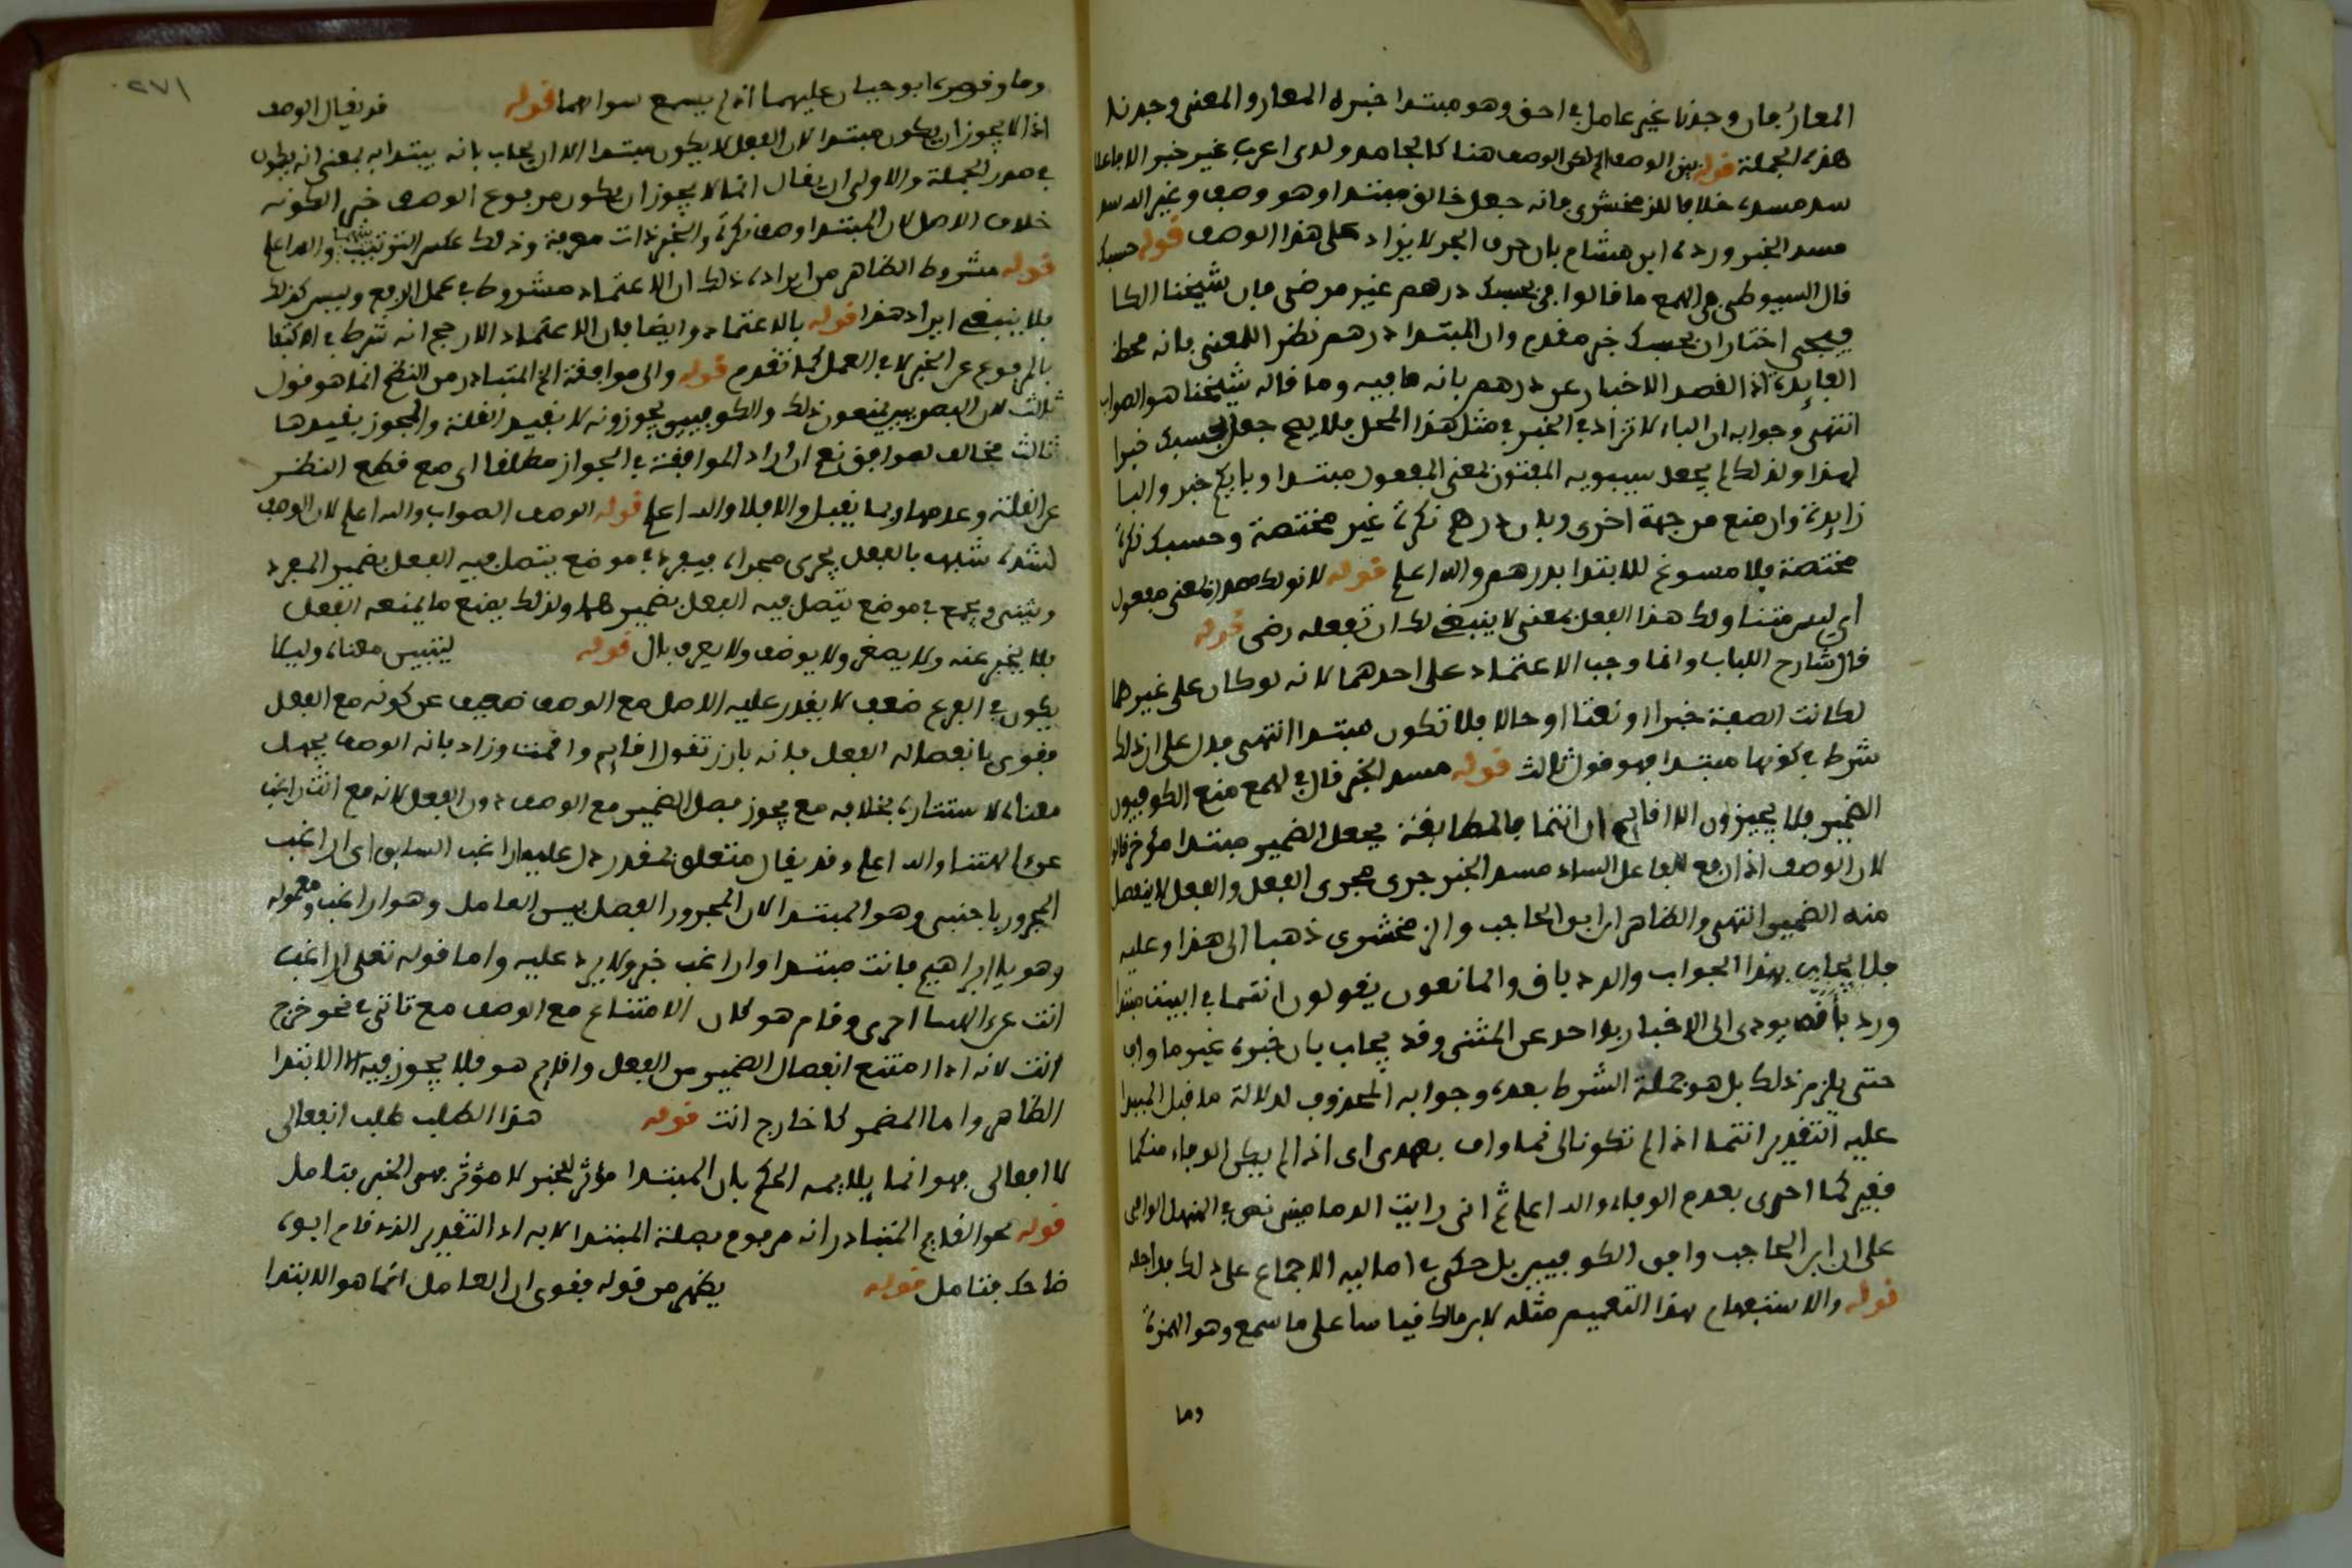 المعار فان وجدنا غير عامل في احق وهو مبتدا خبره المعار والمعنى وجدنا
هذه الجملة قوله بين الوصف الخ لكن الوصف هنا كالجامد ولذى اعرب غير خبر
سد مسده خلافا للزمخشرى فانه جعل خالق مبتدا وهو وصف وغير الله سد
مسد الخبر ورده ابن هشام بان حرف الجر لا يزاد على هذا الوصف قوله حسبك
قال السيوطى في الهمع ما قالوا في بحسبك درهم غير مرضى فان شيخنا الكا
فيجى اختار ان بحسبك خبر مقدم وان المبتدا درهم نظرا للمعنى فانه محط
الفايدة اذ القصد الاخبار عن درهم بانه كافيه وما قاله شيخنا هو الصواب
انتهى وجوابه ان الباء لا تزاد في الخبر في مثل هذا المحل فلا يصح جعل بحسبك خبرا
لهذا ولذلك لم يجعل سيبويه المفتون بمعنى المفعول مبتدا وبايكم خبر والبا
زايدة وان منع من جهة اخرى وبان درهم نكرة غير مختصة وحسبك نكرة
مختصة فلا مسوغ للابتدا بدرهم والله اعلم قوله لا نولك مصدر بمعنى مفعول
اي ليس متناولك هذا الفعل بمعنى لا ينبغي لك ان تفعله رضى قوله
قال شارح اللباب وانما وجب الاعتماد على احدهما لانه لو كان على غيرهما
لكانت الصفة خبرا او نعتا او حالا فلا تكون مبتدا انتهى فدل على ان ذلك
شرط في كونها مبتدا فهو قول ثالث قوله مسد الخبر قال في الهمع منع الكوفيون
الضمير فلا يجيزون الا اقايم ان انتما فالمطابقة يجعل الضمير مبتدا مؤخر قالوا
لان الوصف اذا رفع الفاعل الساد مسد الخبر جرى مجرى الفعل والفعل لا ينفصل
منه الضمير انتهى والظاهر ان ابن الحاجب والزمخشرى ذهبا الى هذا وعليه
فلا يجاب بهذا الجواب والرد باق والمانعون يقولون انتما في البيت مبتدا
ورد بانه يودى الى الاخبار بواحد عن المثنى وقد يجاب بان خبره غير ما واف
حتى يلزم ذلك بل هو جملة الشرط بعده وجوابه المحذوف لدلالة ما قبل المبتدا
عليه التقدير انتما اذا لم تكونا لى فما واف بعهدى اى اذا لم يكن الوفاء منكما
فغيركما احرى بعدم الوفاء والله اعلم ثم انى رايت الدمامينى نص في المنهل الوافى
على ان ابن الحاجب وافق الكوفيين بل حكى في اماليه الاجماع على ذلك فراجعه
قوله والاستفهام بهذا التعميم مثله لابن مالك قياسا على ما سمع وهو الهمزة
وما
٢٧١
وما وقصره ابو حيان عليهما اذ لم يسمع سواهما قوله قد يقال الوصف
اذا لا يجوز ان يكون مبتدا لان الفعل لا يكون مبتدا الا ان يجاب بانه يبتدا به بمعنى انه يكون
في صدر الجملة والاولى ان يقال انما لا يجوز ان يكون مرفوع الوصف خبرا لكونه
خلاف الاصل لان المبتدا وصف نكرة والخبر ذات معرفة وذلك عكس الترتيب بينهما والله اعلم
قوله مشروط الظاهر من ايراده ذلك ان الاعتماد مشروط في عمل الرفع وليس كذلك
فلا ينبغي ايراد هذا قوله بالاعتماد وايضا فان الاعتماد الارجح انه شرط في الاكتفا
بالمرفوع عن الخبر لا في العمل كما تقدم قوله والى موافقة الخ المتبادر من النظم انما هو قول
ثالث لان البصريين يمنعون ذلك والكوفيين يجوزونه لا بقيد القلة والمجوز بقيدها
ثالث مخالف لموافق نعم ان اراد الموافقة في الجواز مطلقا اى مع قطع النظر
عن القلة وعدمها فربما يقبل والا فلا والله اعلم قوله الوصف الصواب والله اعلم لان الوصف
لشدة شبهه بالفعل يجرى مجراه فيفرد في موضع يتصل فيه الفعل بضمير المفرد
ويثنى ويجمع في موضع يتصل فيه الفعل بضميرهما ولذلك يمنع ما يمنعه الفعل
فلا يخبر عنه ولا يصغر ولا يوصف ولا يعرف بال قوله ليتبين معناه وليلا
يكون في الفرع ضعف لا يقدر عليه الاصل مع الوصف ضعيف عن كونه مع الفعل
فقوى بانفصاله الفعل فانه بارز تقول اقايم واقمت وزاد بانه الوصف يجهل
معناه لاستتاره بخلافه مع يجوز فصل الضمير مع الوصف دون الفعل لانه مع انت راغب
والله اعلم وقد يقال متعلق بمقدر دل عليه اراغب السابق اى اراغب
المجرور باجنبى وهو المبتدا لان المجرور الفصل بين العامل وهو اراغب ومعموله
وهو يا ابراهيم فانت مبتدا واراغب خبر ولا يرد عليه واما قوله تعلى اراغب
انت عن الهتنا احرى وقام هو كان الامتناع مع الوصف مع تاتى في نحو خرج
انت لانه اذا امتنع انفصال الضمير من الفعل واقايم هو فلا يجوز فيه الا الابتدا
الظاهر واما المضمر كما خارج انت قوله هذا الطلب طلب انفعالى
لا افعالى فهو انما يلايمه الحكم بان المبتدا مؤثر للخبر لا مؤثر فهو الخبر بتامل
قوله نحو القايم المتبادر انه مرفوع بصلة المبتدا لا به اذ التقدير الذى قام ابوه
ضاحك فتامل قوله يظهر من قوله فقوى ان العامل انما هو الابتدا